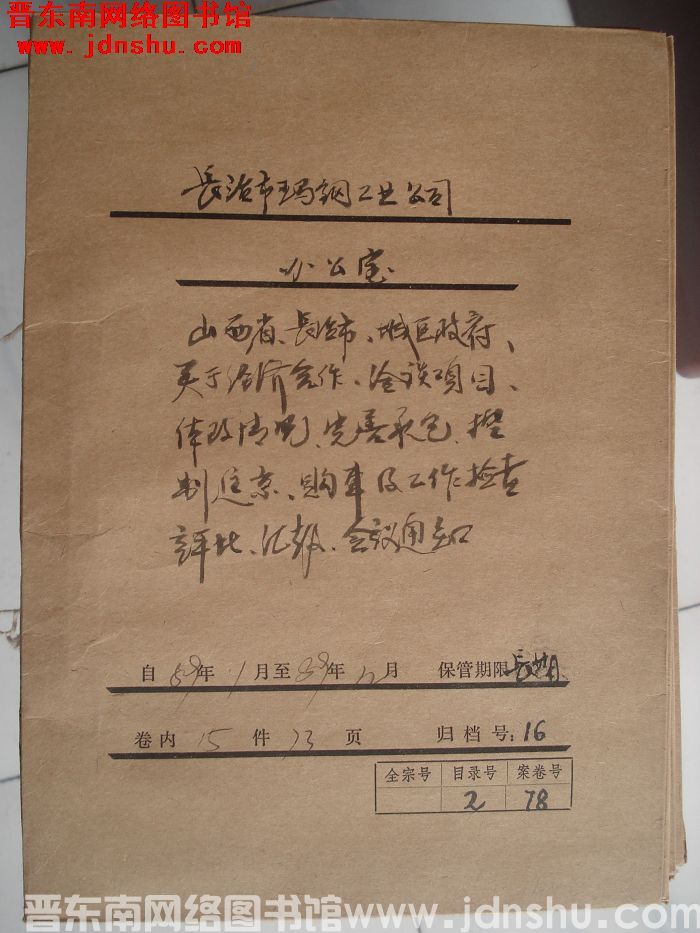 晋东南网络图书馆
www.jdnshu.com
長治市玛钢工业公司
办公室
山西省、長治市、城区政府、
关于经济合作、洽谈项目、
体改情况、完善承包、控
制进京、购车及工作检查
评比、汇报、会议通知
自 89年 1月至 89年 12月 保管期限 長期
卷内 15 件 73 页 归档号:16
全宗号 目录号 案卷号
2 78
晋东南网络图书馆 www.jdnshu.com